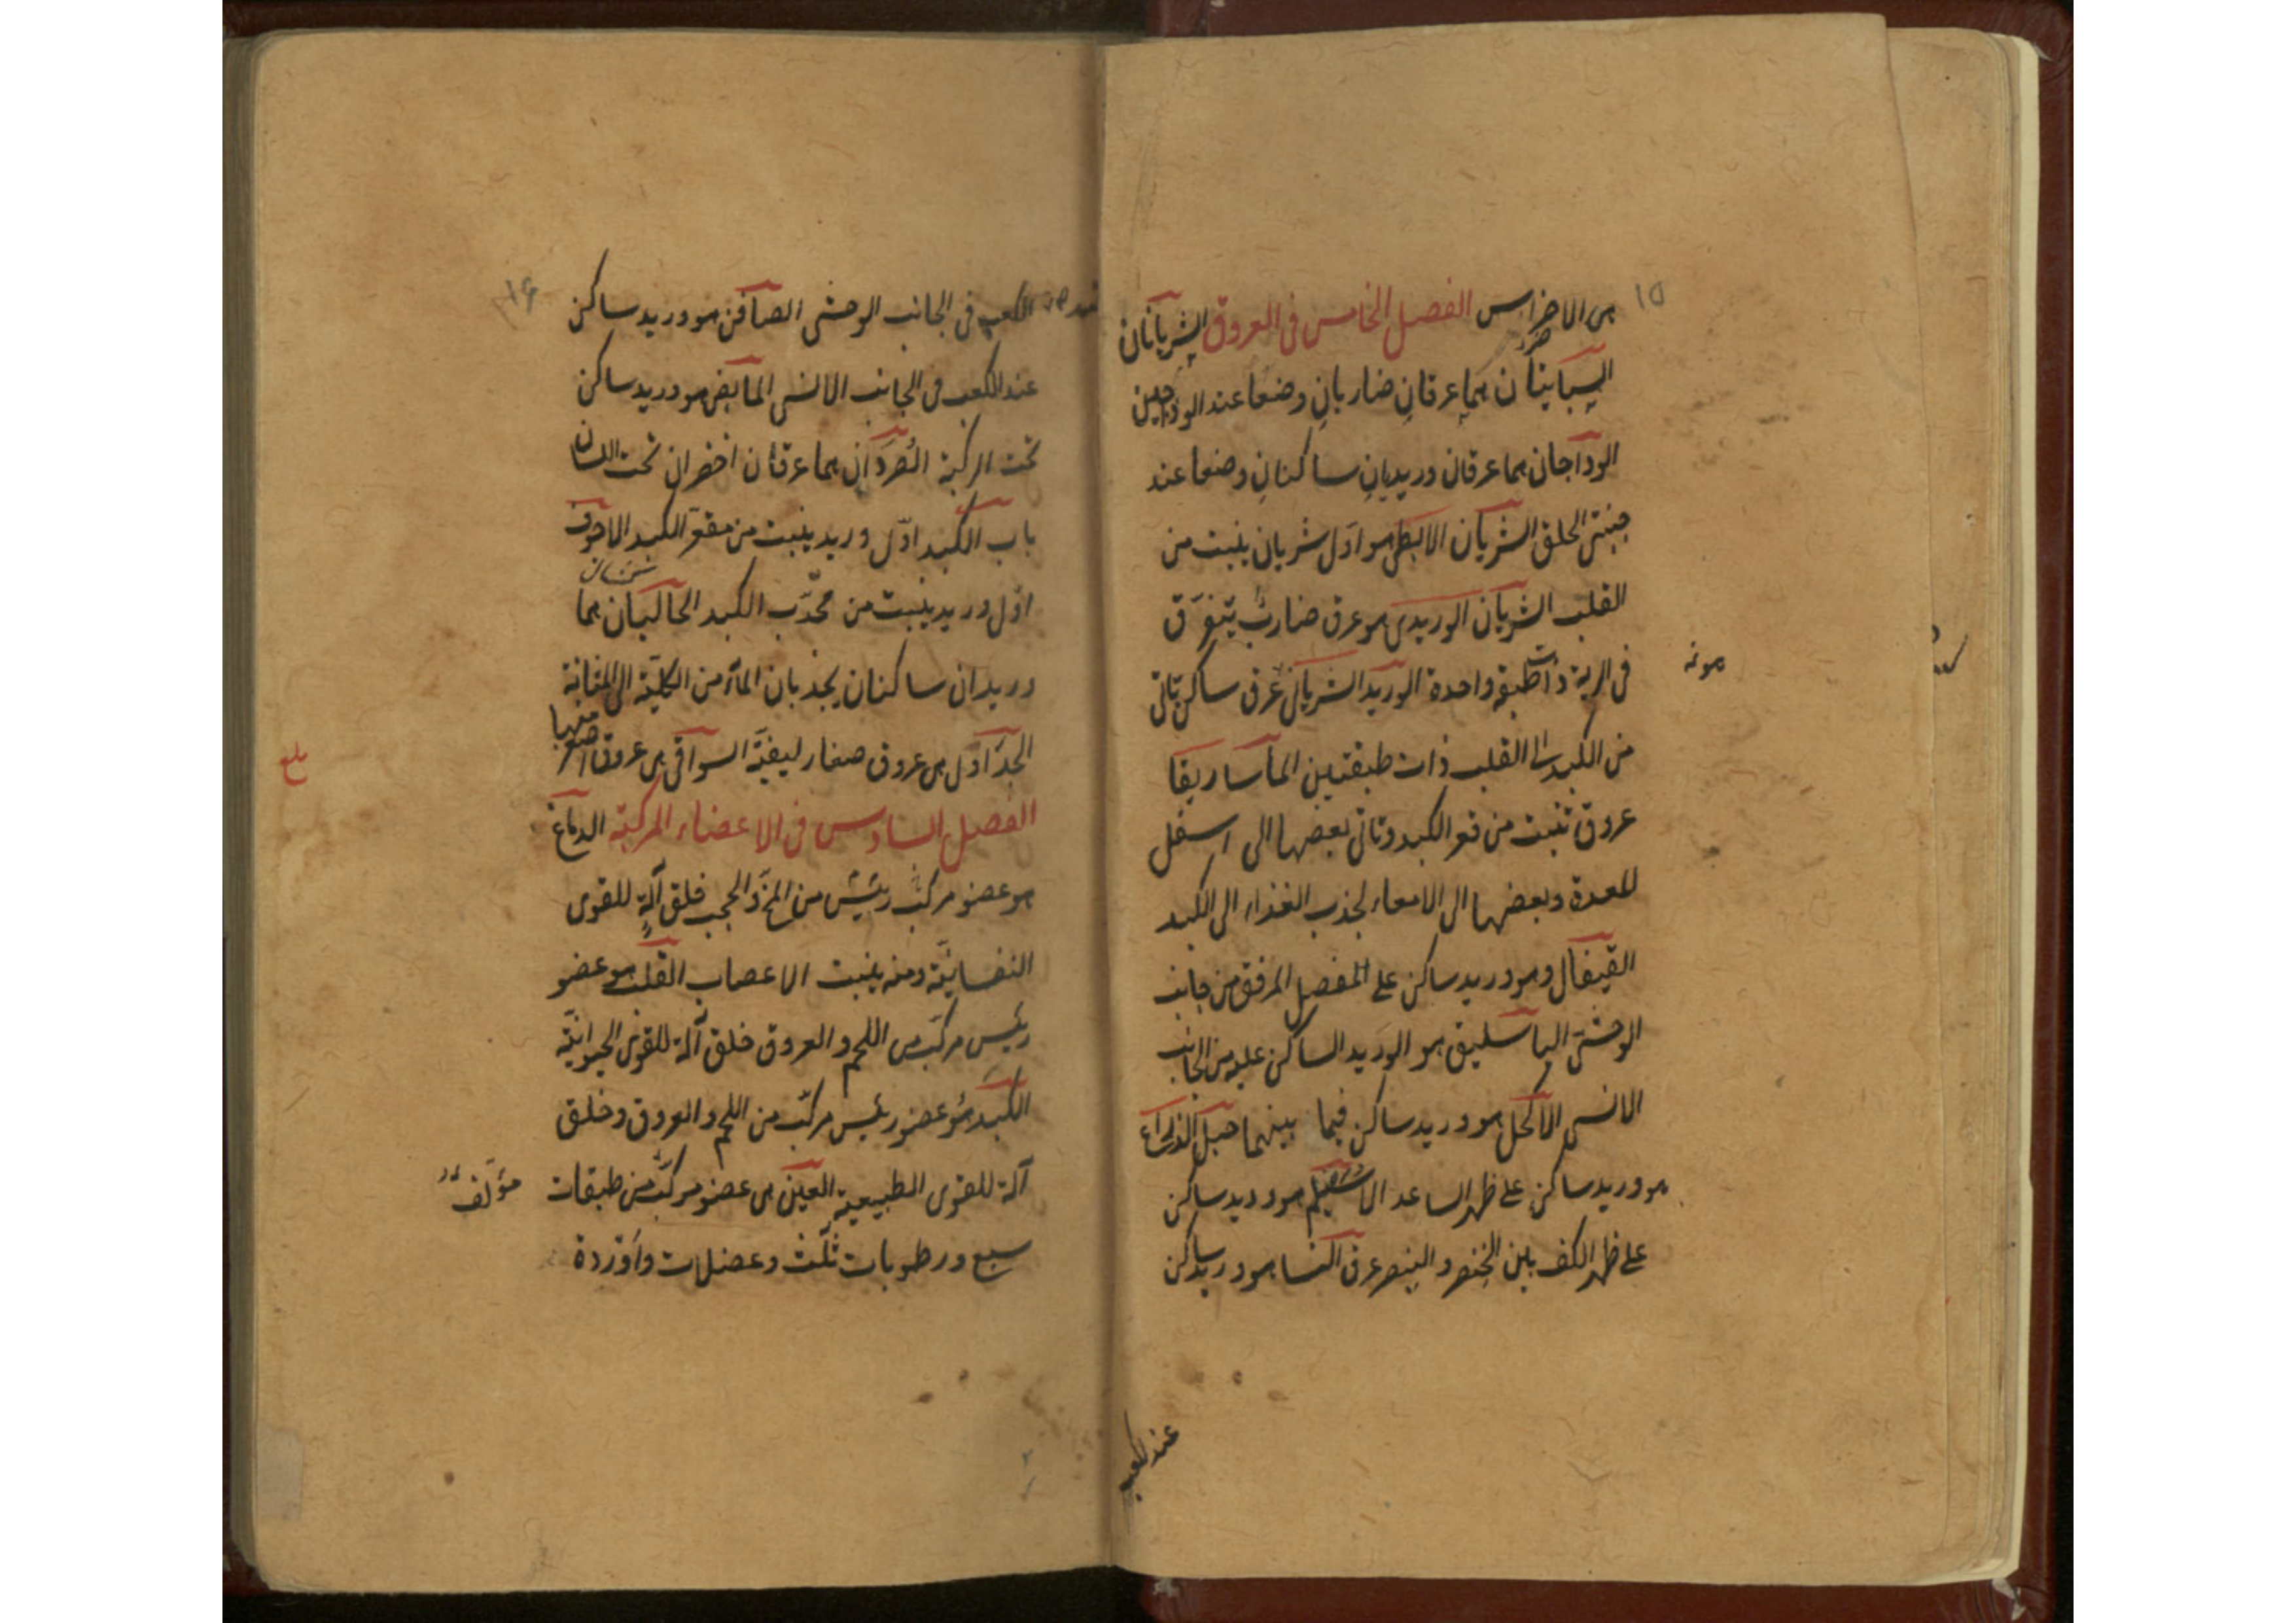 ١٥
هى الاضراس الفصل الخامس فى العروق الشريانان
السباتيان هما عرقان ضاربان وضعا عند الودجين
الوداجان هما عرقان وريديان ساكنان وضعا عند
جنبتى الحلق الشريان الابطى هو اول شريان ينبت من
القلب الشريان الوريدى هو عرق ضارب يتفرق
فى الرية ذات طبقة واحدة الوريد الشريانى عرق ساكن تاتى
من الكبد الى القلب ذات طبقتين الماساريقا
عروق تنبت من قعر الكبد وتاتى بعضها الى اسفل
المعدة وبعضها الى الامعاء لجذب الغذاء الى الكبد
القيفال وهو وريد ساكن على المفصل المرفق من جانب
الوحشى الباسليق هو الوريد الساكن عليه من الجانب
الانسى الاكحل هو وريد ساكن فيما بينهما حبل الذراع
هو وريد ساكن على ظهر الساعد الاسيلم هو وريد ساكن
على ظهر الكف بين الخنصر والبنصر عرق النسا هو وريد ساكن
عند الكعب
١٦
الكعب فى الجانب الوحشى الصافن هو وريد ساكن
عند الكعب فى الجانب الانسى المابض هو وريد ساكن
تحت الركبة الصردان هما عرقان اخضران تحت اللسان
باب الكبد اول وريد ينبت من مقعر الكبد الاجوف
اول وريد ينبت من محدب الكبد الحالبان هما
وريدان ساكنان يجذبان الماء من الكلية الى المثانة
الجداول هى عروق صغار ليفية السواقى هى عروق اصغر منها
الفصل السادس فى الاعضاء المركبة الدماغ
هو عضو مركب رئيس من المخ والحجب خلق آلة للقوى
النفسانية ومنه ينبت الاعصاب القلب هو عضو
رئيس مركب من اللحم والعروق خلق آلة للقوى الحيوانية
الكبد هو عضو رئيس مركب من اللحم والعروق وخلق
آلة للقوى الطبيعية العين هى عضو مركب من طبقات
مؤلف
سبع ورطوبات ثلث وعضلات واوردة